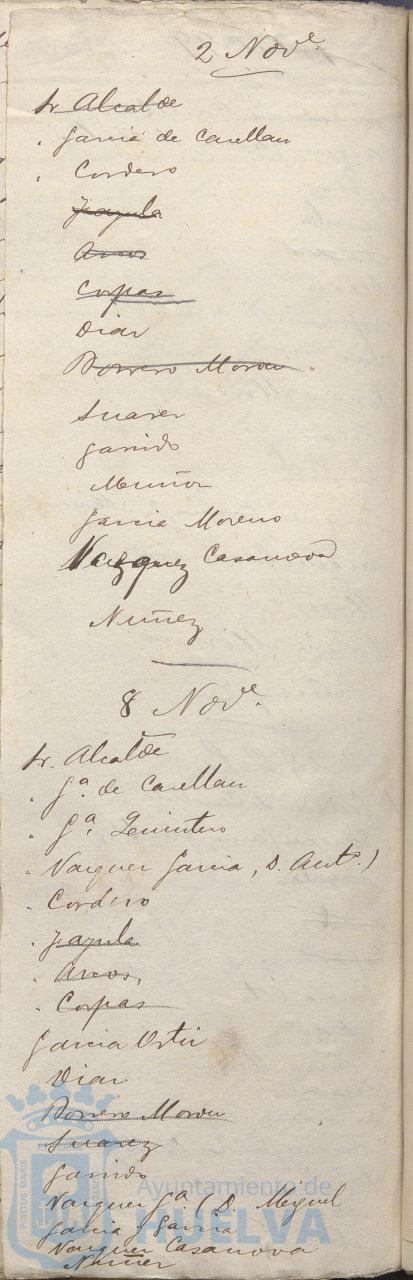 2 Nov.e
Sr Alcalde
. Garcia de Casellan
. Cordero
Fazula
Arcos
Corpas
Diaz
Borrero Moron .
Suarez
Garrido
Muñoz
Garcia Moreno
Vazquez Casanova
Nuñez
8 Nov.e
Sr. Alcalde
. G.a de Casellan
. G.a Quintero
. Vazquez Garcia, D. Ant.o)
. Cordero
. Fazula
. Arcos,
. Corpas
Garcia Ortiz
Diaz
Borrero Moron
Suarez
Garrido
Vazquez G.a (D. Miguel
Garcia Garcia
Vazquez Casanova
Nuñez
PORTUS MARIS
Ayuntamiento de
HUELVA